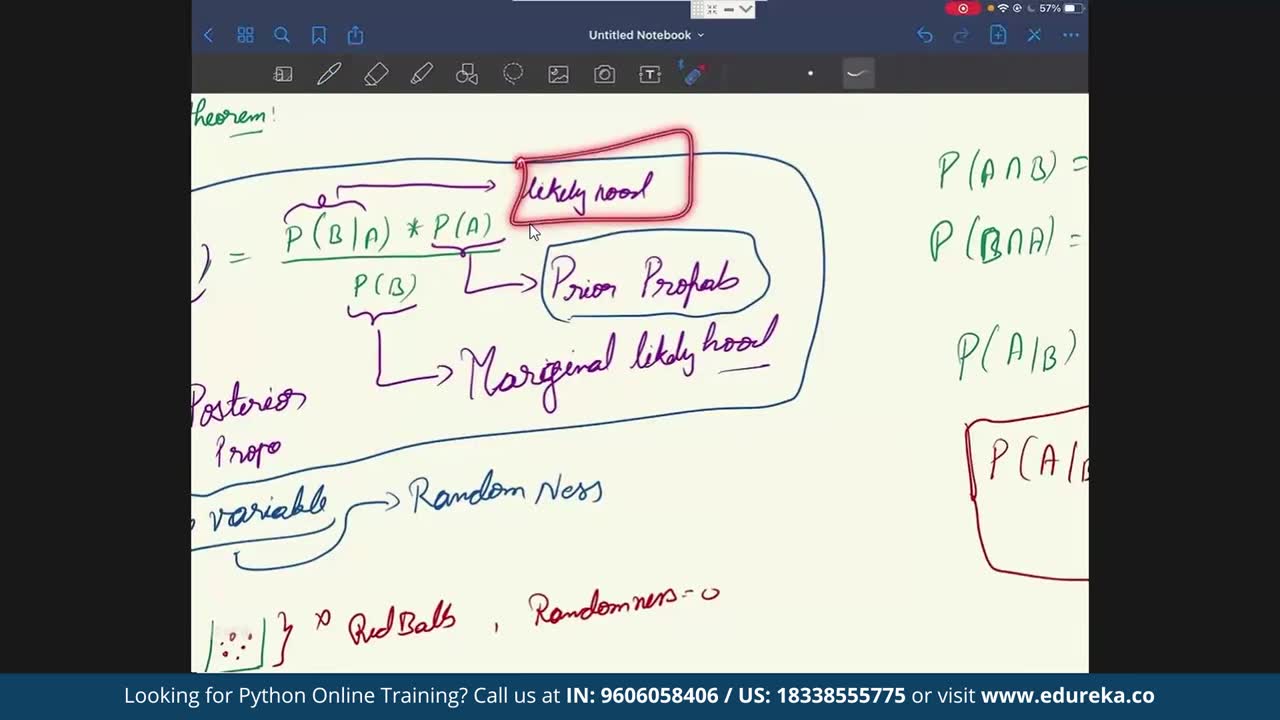 57%
Untitled Notebook
heorem:
likelyhood
P(B|A) * P(A)
) =
P(B)
Prior Probab
Mariginal likelyhood
Posterior
Propo
variable
Random Ness
Red Balls , Randomness = 0
P(A∩B) =
P(B∩A) =
P(A|B)
P(A|B
Looking for Python Online Training? Call us at IN: 9606058406 / US: 18338555775 or visit www.edureka.co